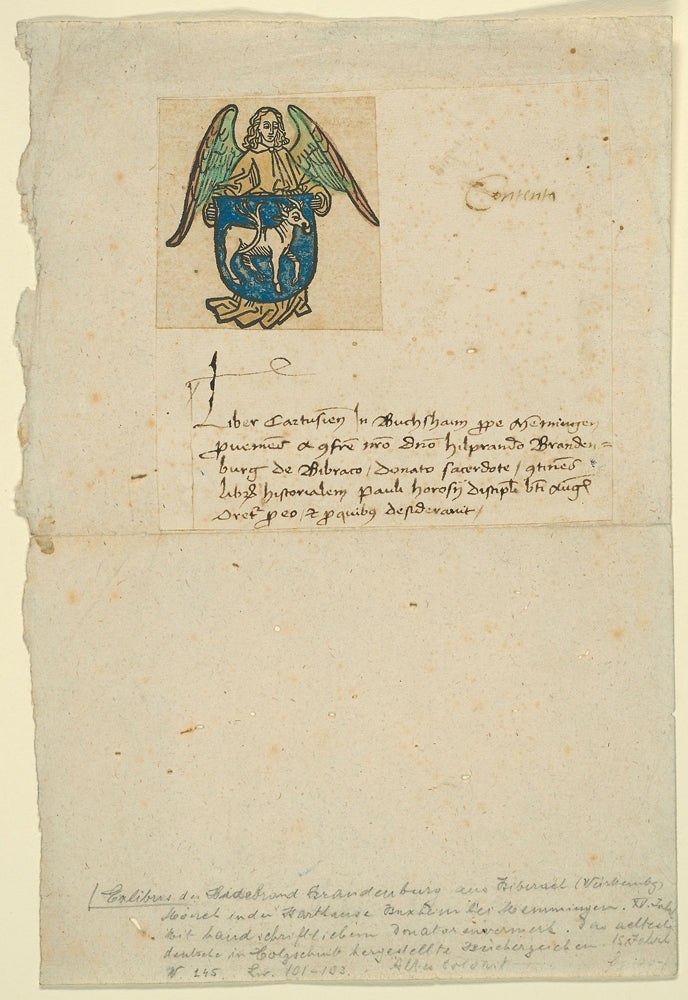 Contenta
Liber Cartusien In Buchshaim prope Memingen
proveniens a confre nro dno hilprando Branden=
burg de Bibraco / donato sacerdote / continens
libru historialem Pauli horosy discipli bti Aug
Oretr pro eo / et pro quibus desideravit /
Exlibris des Hildebrand Brandenburg aus Biberach (Württembg)
Mönch in der Karthause Buxheim bei Memmingen. XV. Jahr
Mit handschriftlichem Donatorenvermerk. Das aelteste
deutsche in Holzschnitt hergestellte Buecherzeichen.
W 145. Lw. 101-103. Altes Colorit